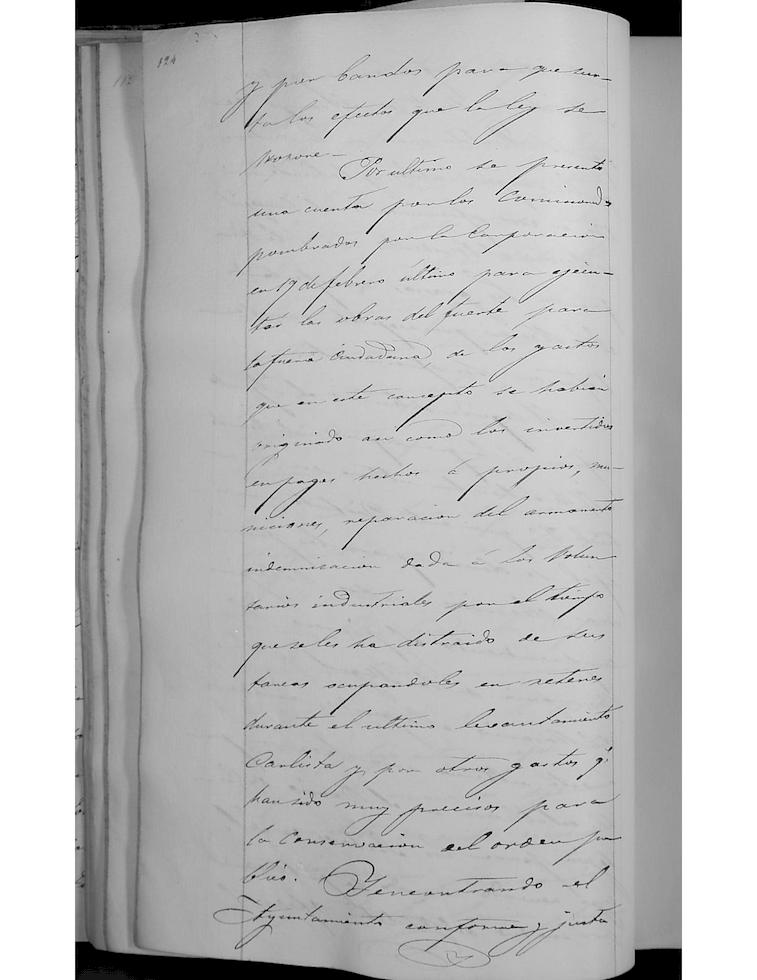 124
y por bandos para que sur-
ta los efectos que la ley se
propone-
Por ultimo se presentó
una cuenta por los Comisionados
nombrados por la Corporacion
en 19 de febrero ultimo para ejecu-
tar las obras del fuerte para
la fuerza Ciudadana, de los gastos
que en este concepto se habian
originado asi como los invertidos
en pagos hechos á propios, mu-
niciones, reparacion del armamento
indemnizacion dada á los Volun
tarios industriales por el tiempo
que se les ha distraido de sus
tareas ocupandoles en retenes
durante el ultimo levantamiento
Carlista y por otros gastos q.
han sido muy precisos para
la conservacion del orden pu
blico. Y encontrando el
Ayuntamiento conforme y justa